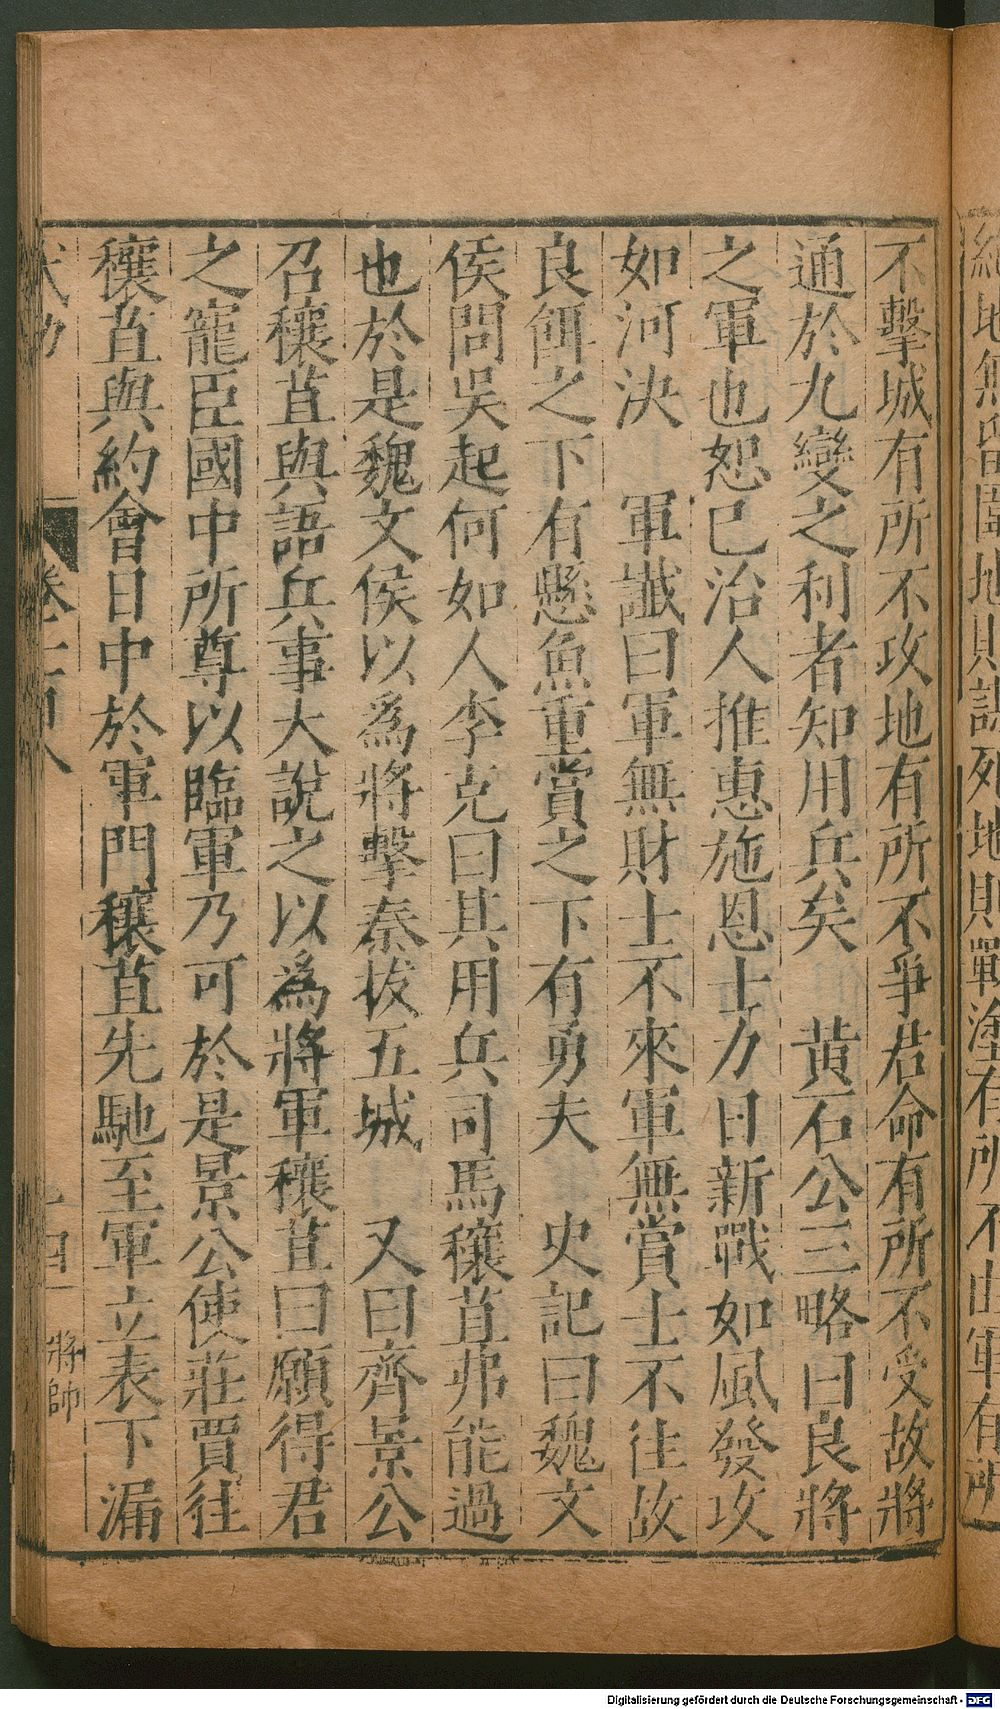 不擊城有所不攻地有所不爭君命有所不受故將
通於九變之利者知用兵矣　黃石公三略曰良將
之軍也恕已治人推惠施恩士力日新戰如風發攻
如河決　軍讖曰軍無財士不來軍無賞士不往故
良餌之下有懸魚重賞之下有勇夫　史記曰魏文
侯問吳起何如人李克曰其用兵司馬穰苴弗能過
也於是魏文侯以為將擊秦拔五城　又曰齊景公
召穰苴與語兵事大說之以為將軍穰苴曰願得君
之寵臣國中所尊以臨軍乃可於是景公使莊賈往
穰苴與約會日中於軍門穰苴先馳至軍立表下漏
將帥
地則戰塗有所不由軍有所
Digitalisierung gefördert durch die Deutsche Forschungsgemeinschaft - DFG